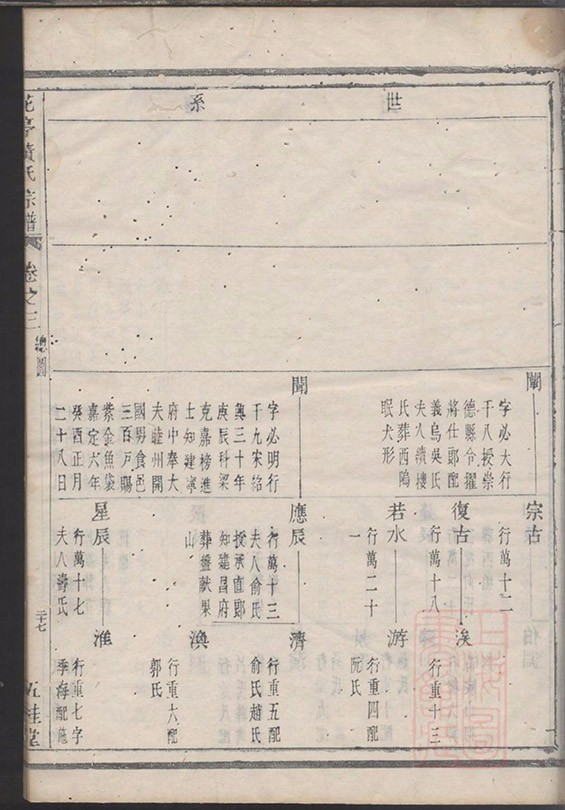 世系
闡
字必大行
千八授崇
德縣令擢
將仕郎配
義烏吳氏
夫人清摟
氏葬西隝
眠犬形
聞
字必明行
千九宋紹
興三十年
庚辰科梁
克嘉榜進
士知建寧
府中奉大
夫睦州開
國男食邑
三百戶賜
紫金魚袋
嘉定六年
癸酉正月
二十八日
宗古
行萬十二
復古
行萬十八
若水
行萬二十
一
應辰
行萬十三
夫人俞氏
授承直郎
知建昌府
葬盤獻果
山
星辰
行萬十七
夫人壽氏
涘
行重十三
游
行重四配
阮氏
濟
行重五配
俞氏趙氏
渙
行重六配
郭氏
淮
行重七字
季海配施
花亭黃氏宗譜
卷之三
總圖
二十七
五桂堂